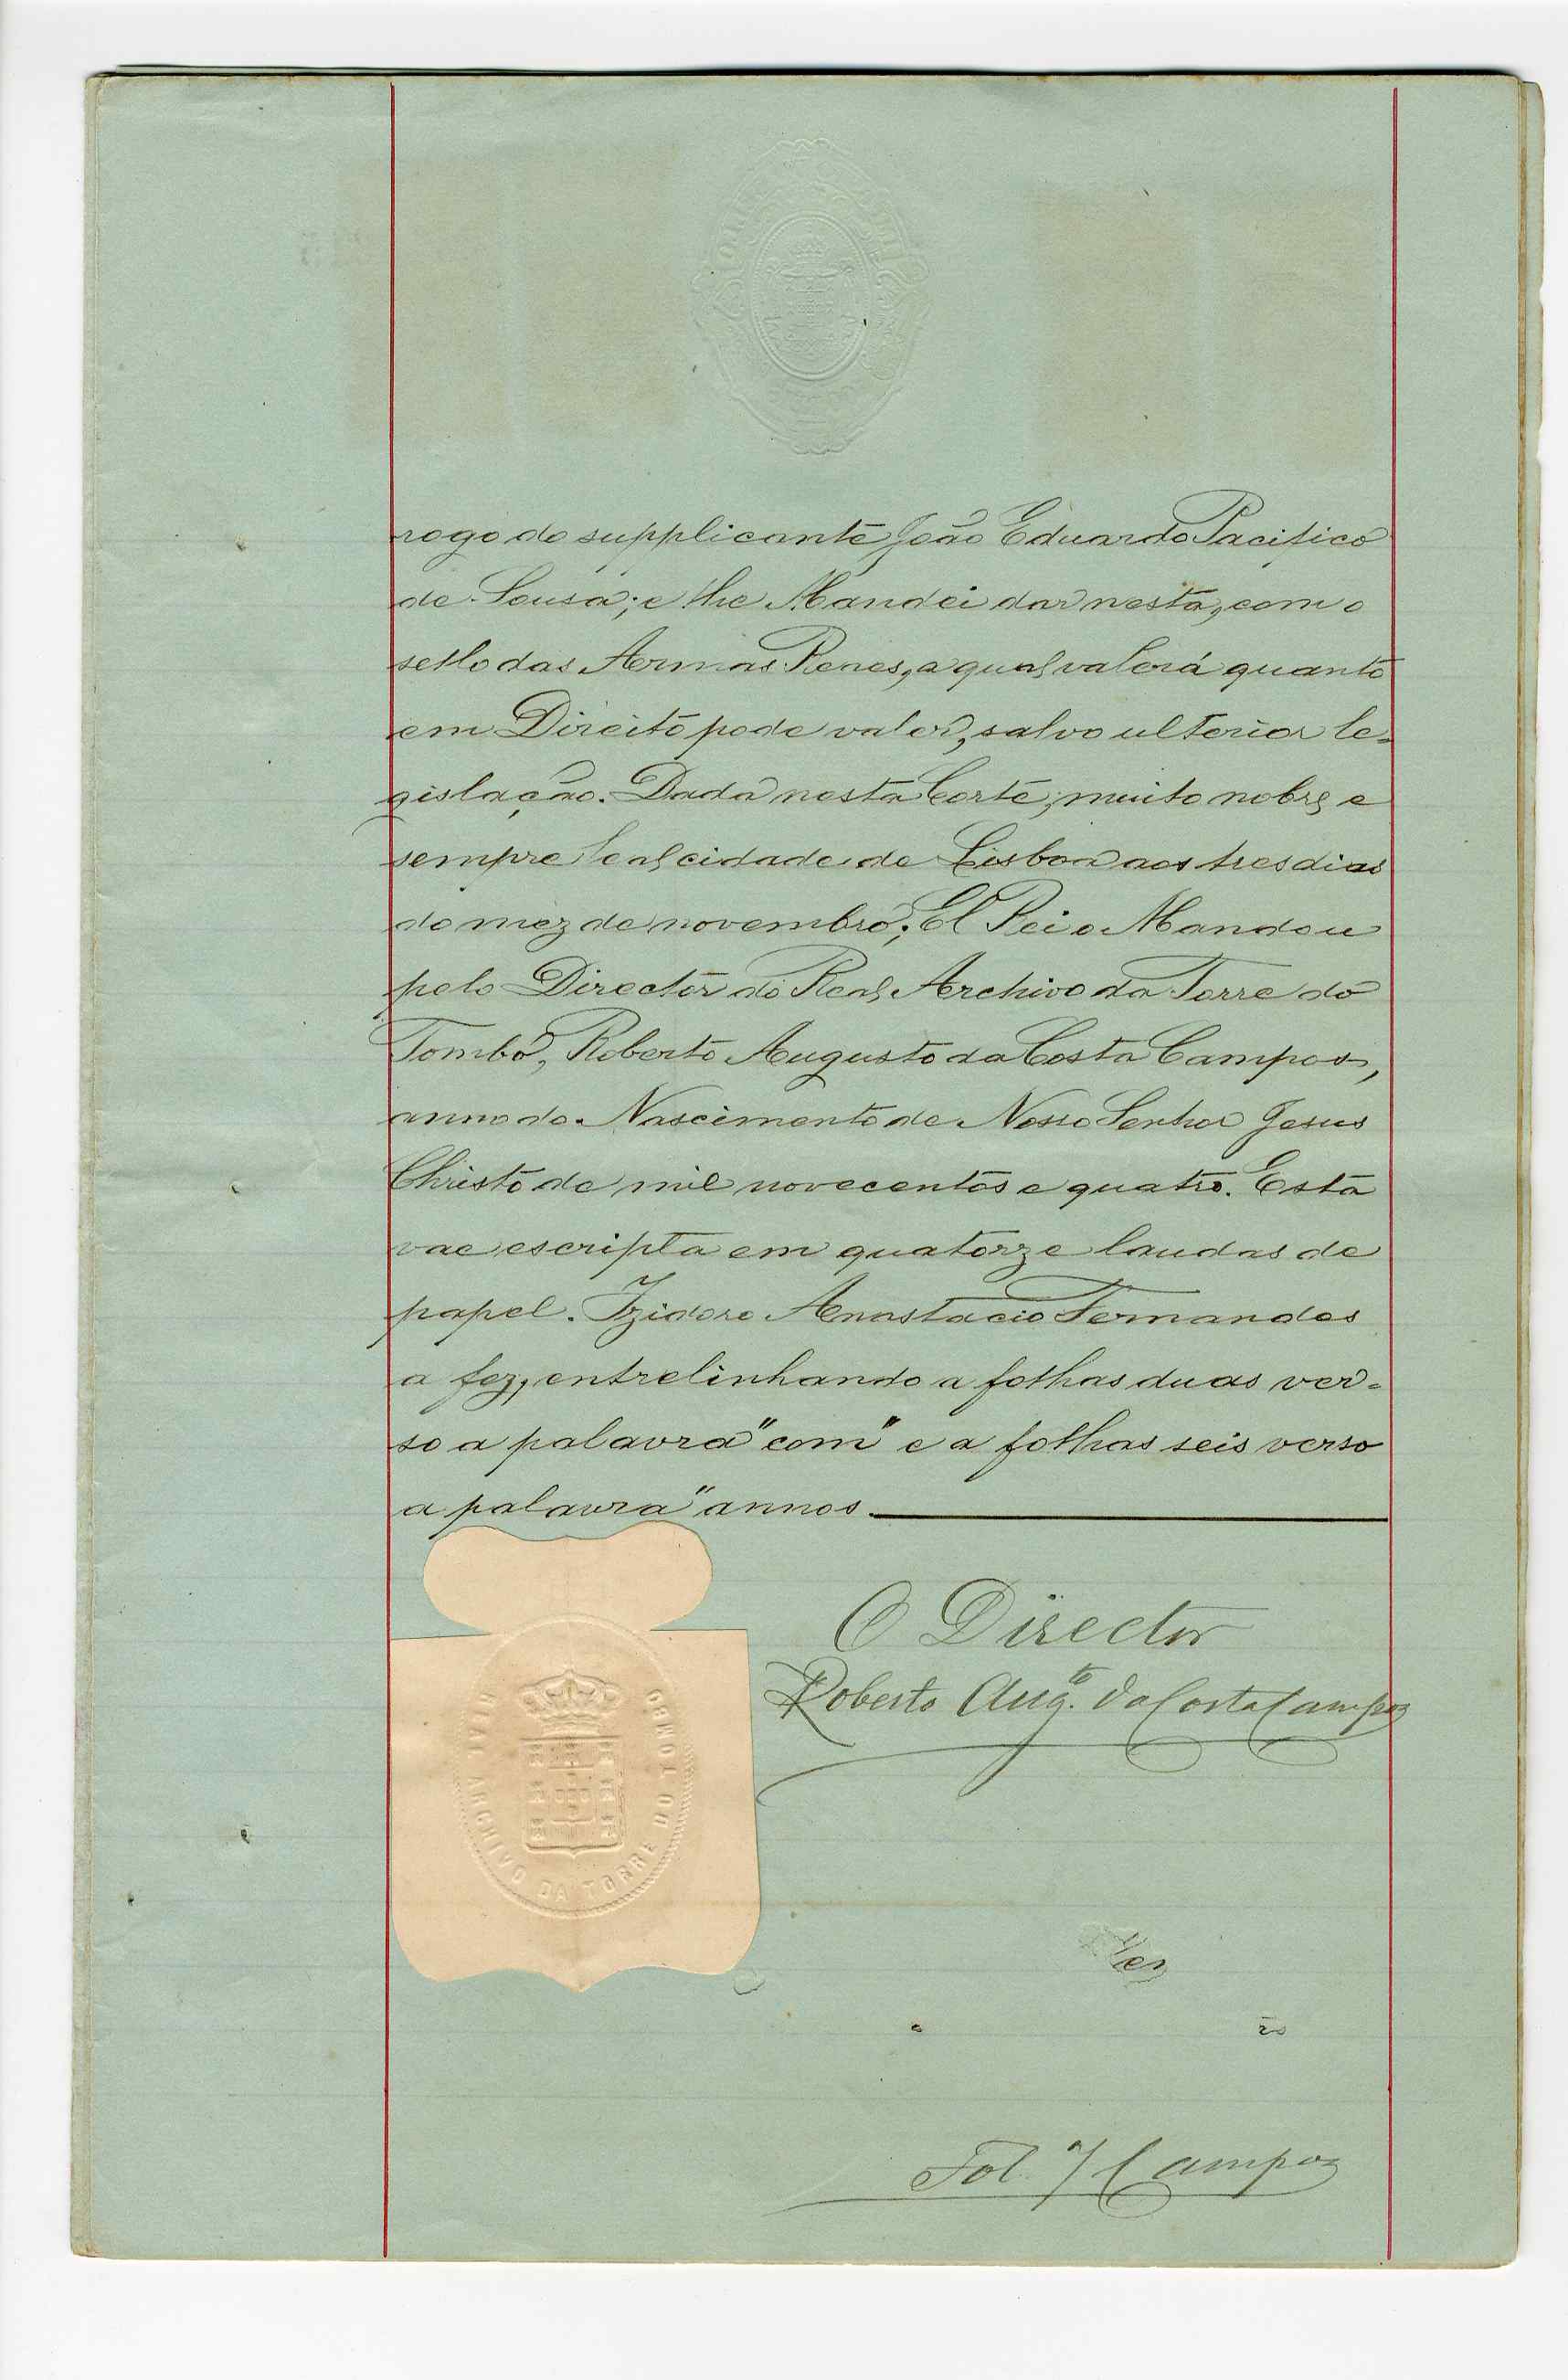 rogo do supplicante João Eduardo Pacifico
de Sousa; e lhe Mandei dar nesta, com o
sello das Armas Reaes, a qual valerá quanto
em Direito pode valer, salvo ulterior le-
gislação. Dada nesta Corte, muito nobre e
sempre leal cidade de Lisboa aos tres dias
do mez de novembro; El Rei o Mandou
pelo Director do Real Archivo da Torre do
Tombo, Roberto Augusto da Costa Campos,
anno do Nascimento de Nosso Senhor Jesus
Christo de mil novecentos e quatro. Esta
vae escripta em quatorze laudas de
papel. Izidoro Anastacio Fernandes
a fez, entrelinhando a folhas duas ver-
so a palavra "com" e a folhas seis verso
a palavra "annos.
O Director
Roberto Aug.to da Costa Campos
REAL ARCHIVO DA TORRE DO TOMBO
Fol. 7 Campos